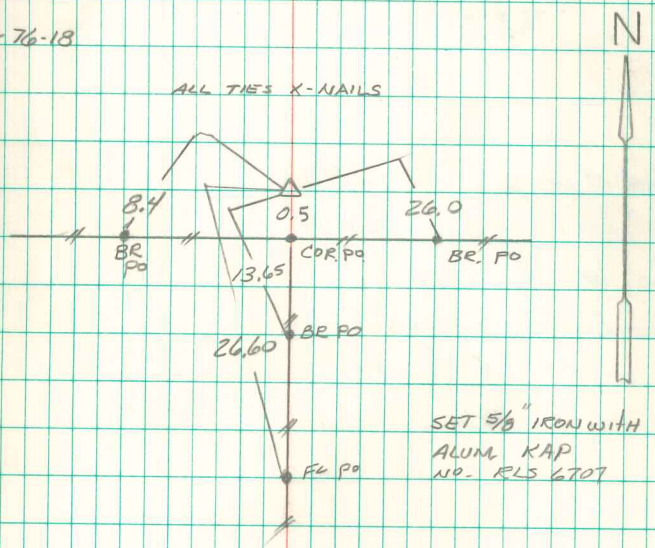 -76-18
N
ALL TIES X-NAILS
8.4
0.5
26.0
BR PO
COR. PO
BR. PO
13.65
BR PO
26.60
SET 5/8" IRON WITH
ALUM KAP
FL PO
NO. RLS 6707